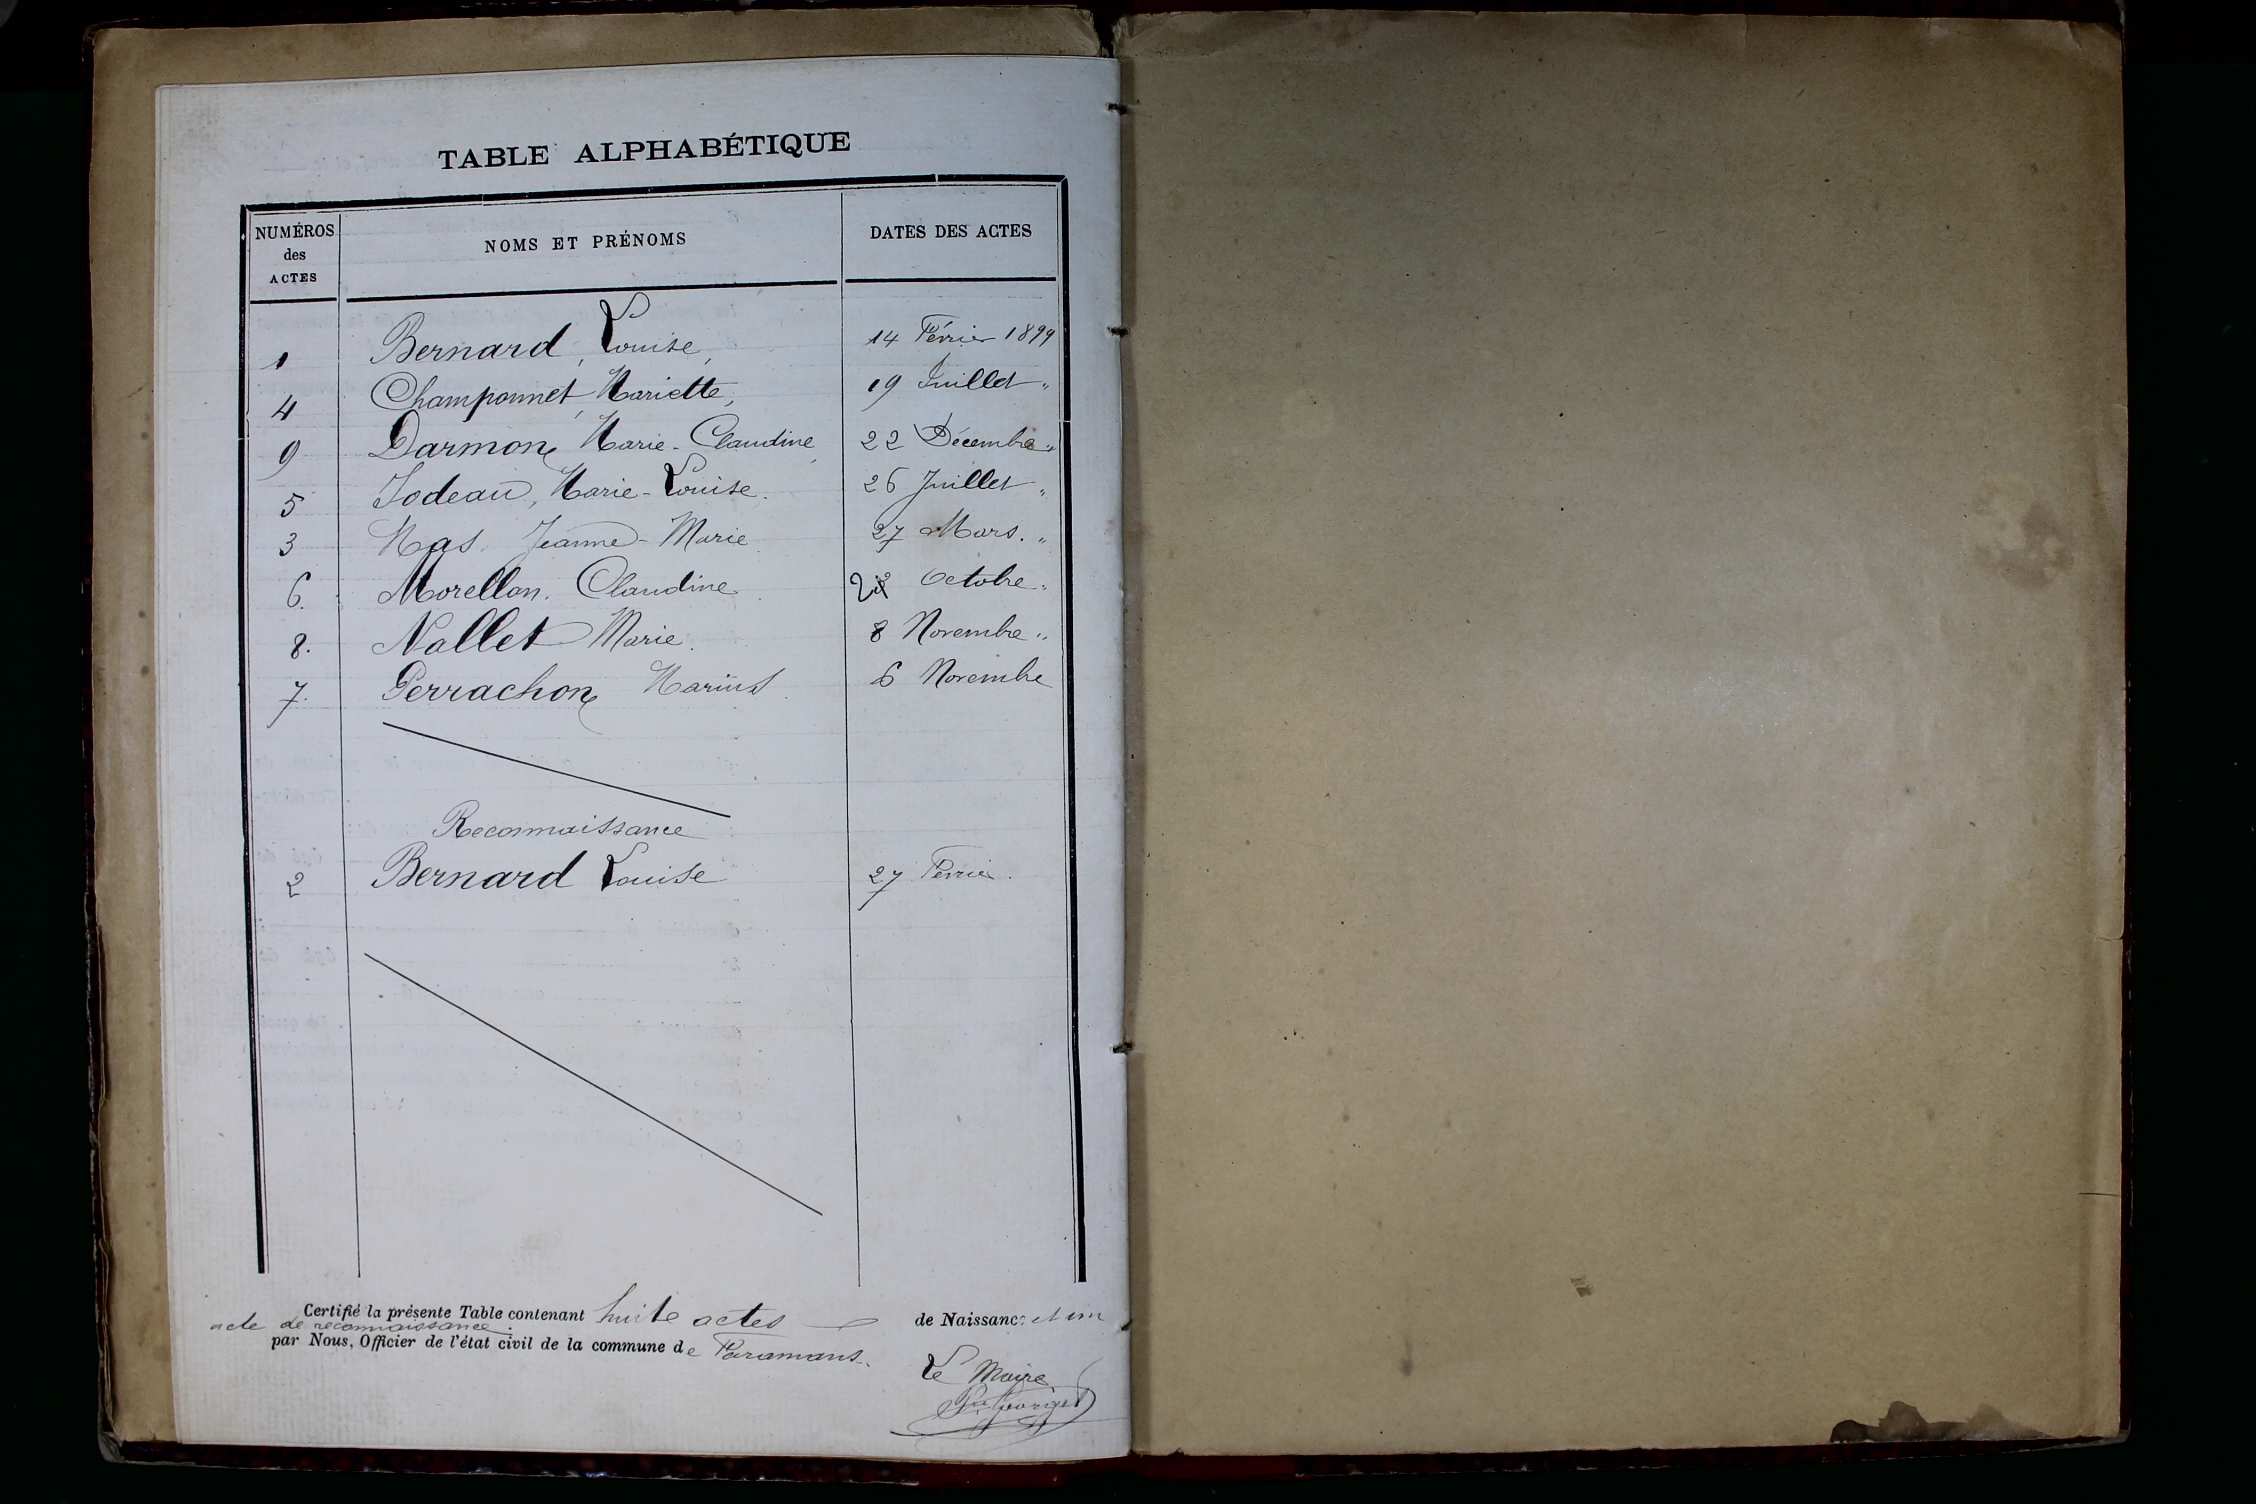 TABLE ALPHABÉTIQUE
NUMÉROS des ACTES NOMS ET PRÉNOMS DATES DES ACTES
1 Bernard, Louise, 14 Février 1899
4 Champonnet, Mariette, 19 Juillet "
9 Darmon, Marie-Claudine, 22 Décembre "
5 Jodeau, Marie-Louise. 26 Juillet "
3 Mas Jeanne-Marie 27 Mars. "
6. Morellon. Claudine Octobre "
8. Nallet Marie. 8 Novembre "
7. Perrachon Marius 6 Novembre
Reconnaissance
2 Bernard Louise 27 Février.
Certifié la présente Table contenant huite actes de Naissance et un
acte de reconnaissance.
par Nous, Officier de l'état civil de la commune de Faramans.
Le Maire